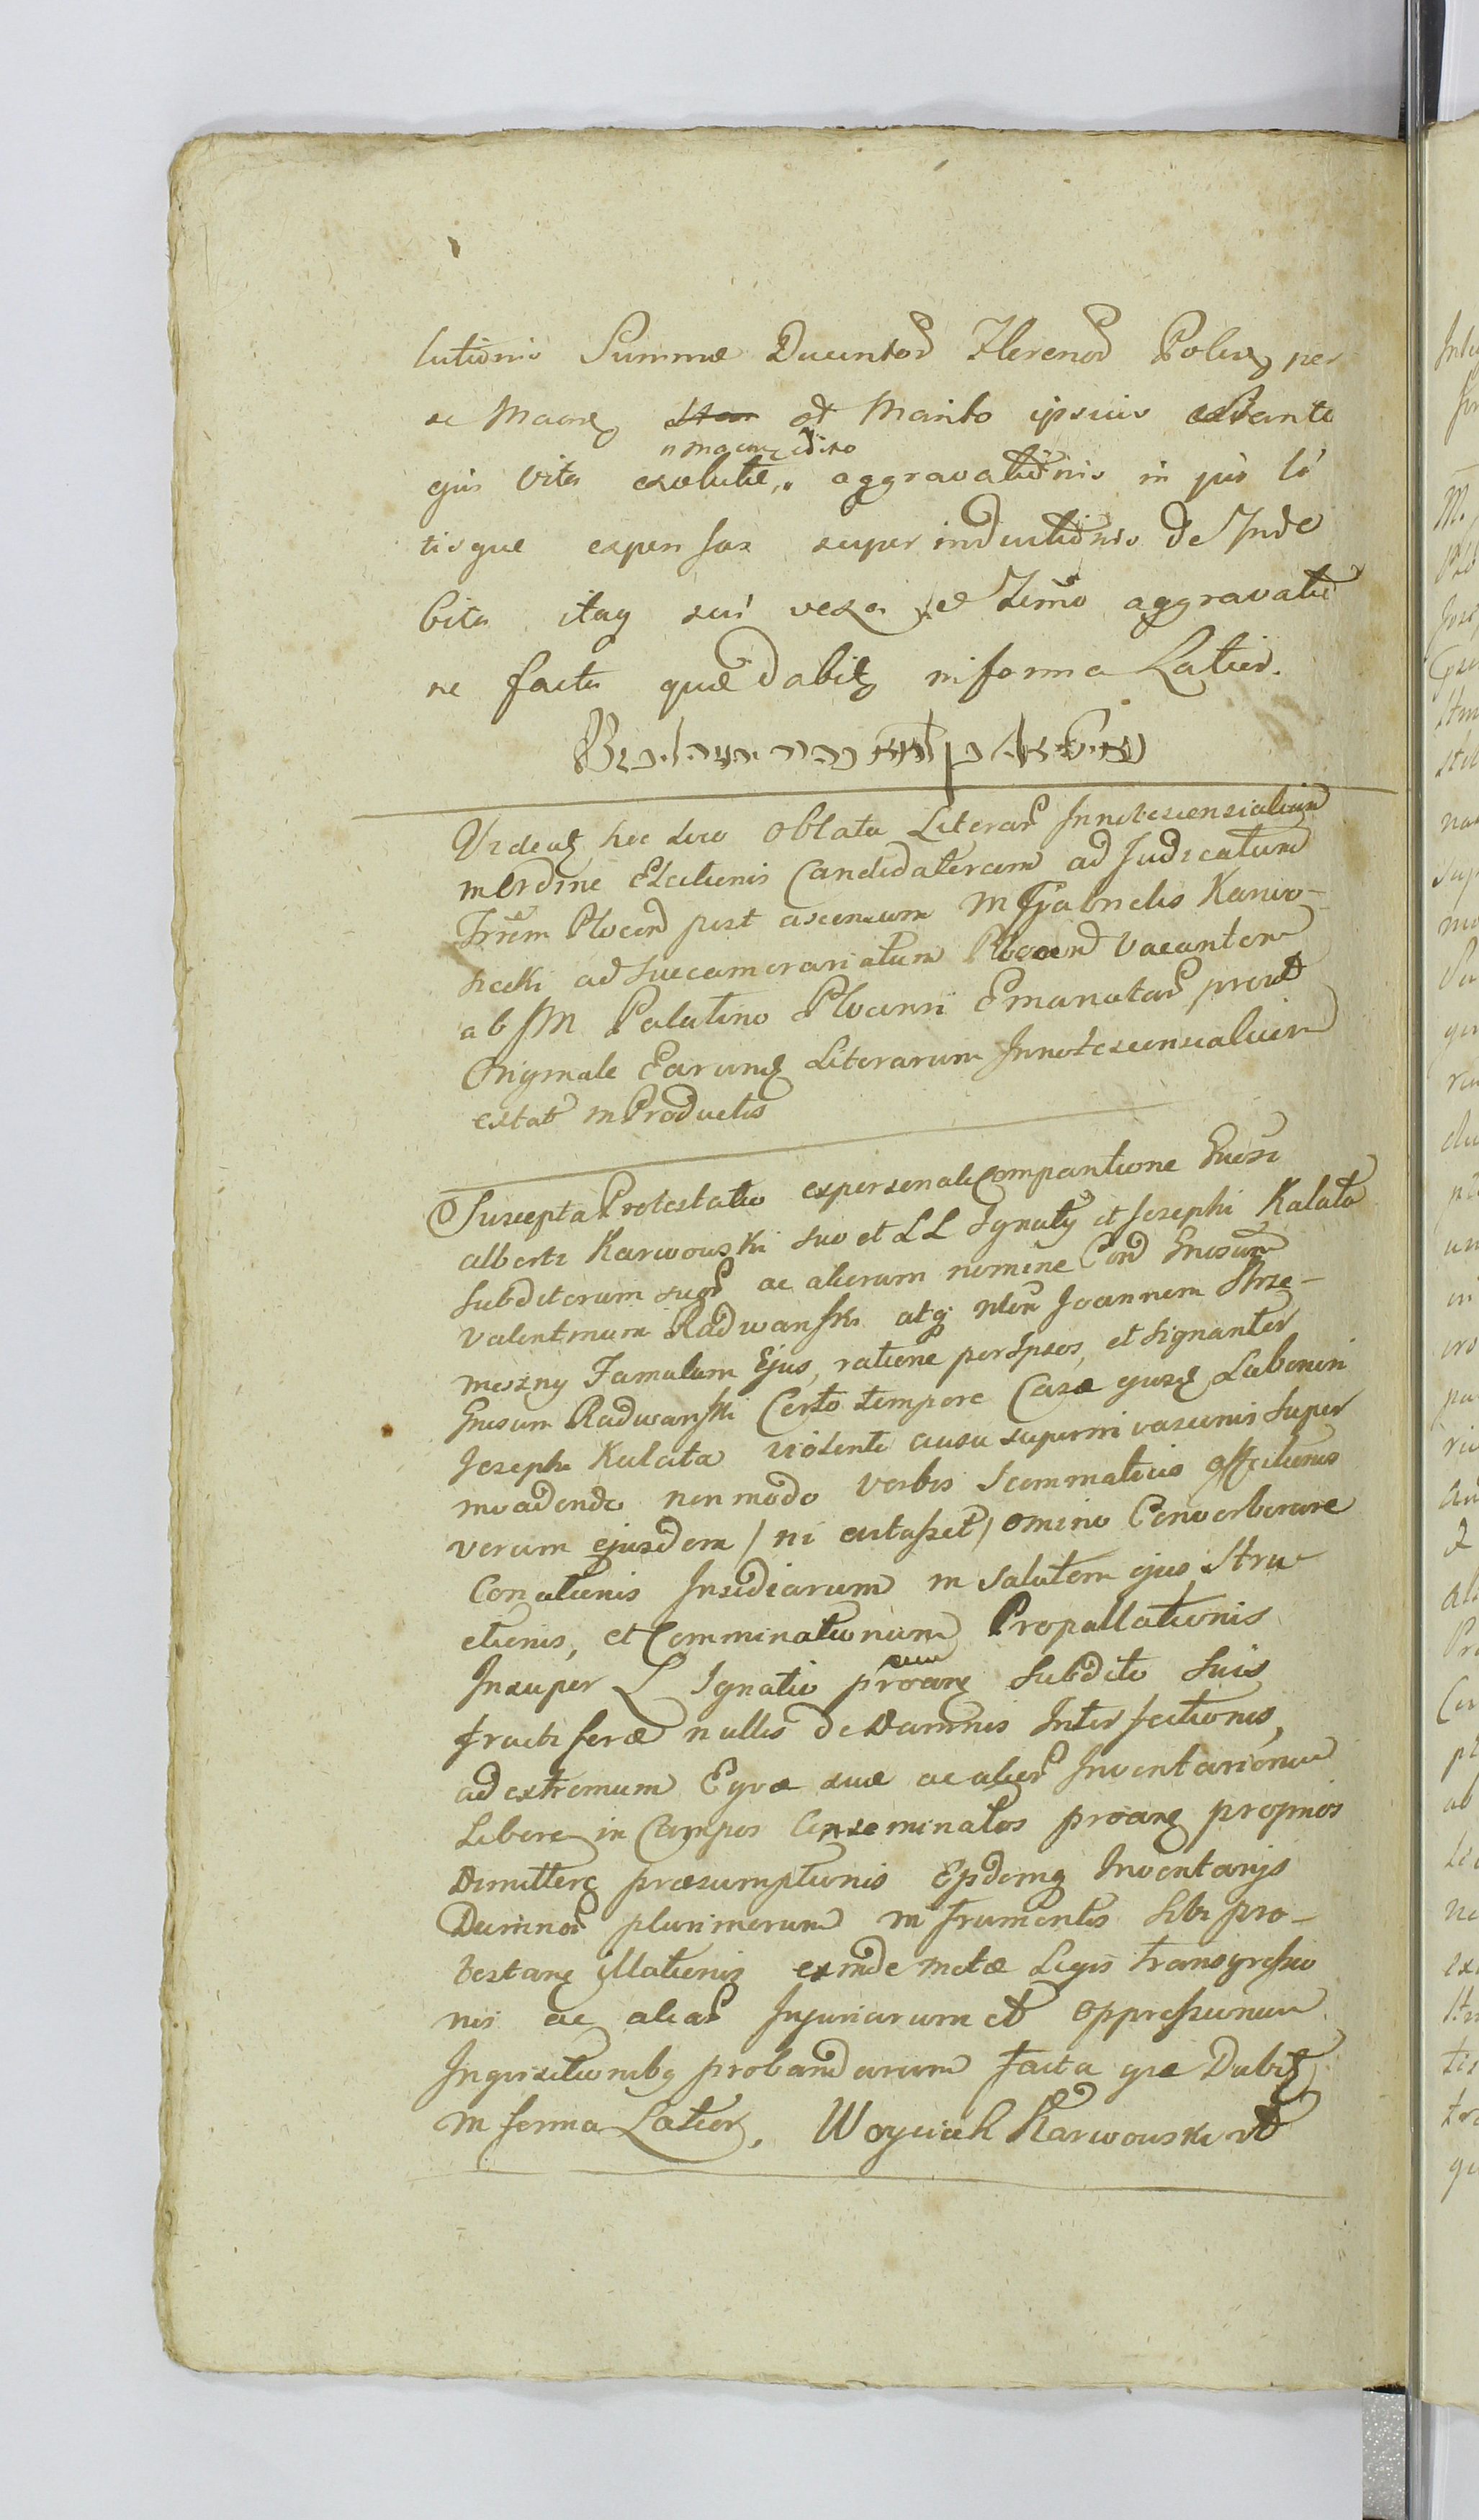 lutionis Summæ Ducentor Flrenor Polon per
se Macone et Marito ipsius extante
non acceptito
ejus vita exolutæ, aggravationis in jus ci
tisque expensas super inductionis de Inde
bita itaq sui vexa et Termo aggravatio
ne facta quæ dabitz in forma Latior.
Videatz hoc loco Oblata Literar Innotescensialium
in Ordine Electionis Candidatorum ad Judicatum
Trrem Plocen post ascensum M Gabrielis Kanigo-
wski ad Succamerariatum Plocen Vacantem
ab JM Palatino Plocensi Emanatar prout
Originale Earumq Literarum Innotescensialium
extat in Productis
Suscepta Protestatio ex personali Comparitione Gnosi
Alberti Karwowski suo et LL Ignaty et Josephi Kalata
Subditorum suor ac aliorum nomine Con Gnosum
Valentinum Radwanski atq Nlem Joannem Strze-
meszny Famulum Ejus, ratione per Ipsos, et signanter
Gnosum Radwanski Certo tempore Casæ ejusd Laboriosi
Joseph Kalata violento ausu superinvasionis super
invadendo non modo verbis Scommaticis Affectionis
verum ejusdem / ni evitasset / omnino Converberare
Conationis Insidiarum in Salutem ejus Stru
ctionis, et Comminationum Propallationis
Insuper L Ignatio proane Subdito Suis
fructiferæ nullis de Damnis Interfectionis,
ad extremum Equæ suæ ac alior Inventariorum
Libere in Campos Conseminatos proane proprios
Dimittere præsumptionis Eisdemq Inventarijs
Damnor plurimorum in frumentis sibi pro-
testane illationis exinde motæ Legis transgressio
nis ac aliar Injuriarum et oppressionum
Inquisitionibq probandarum facta que Dabitz
in forma Latior. Woyciech Karwowski